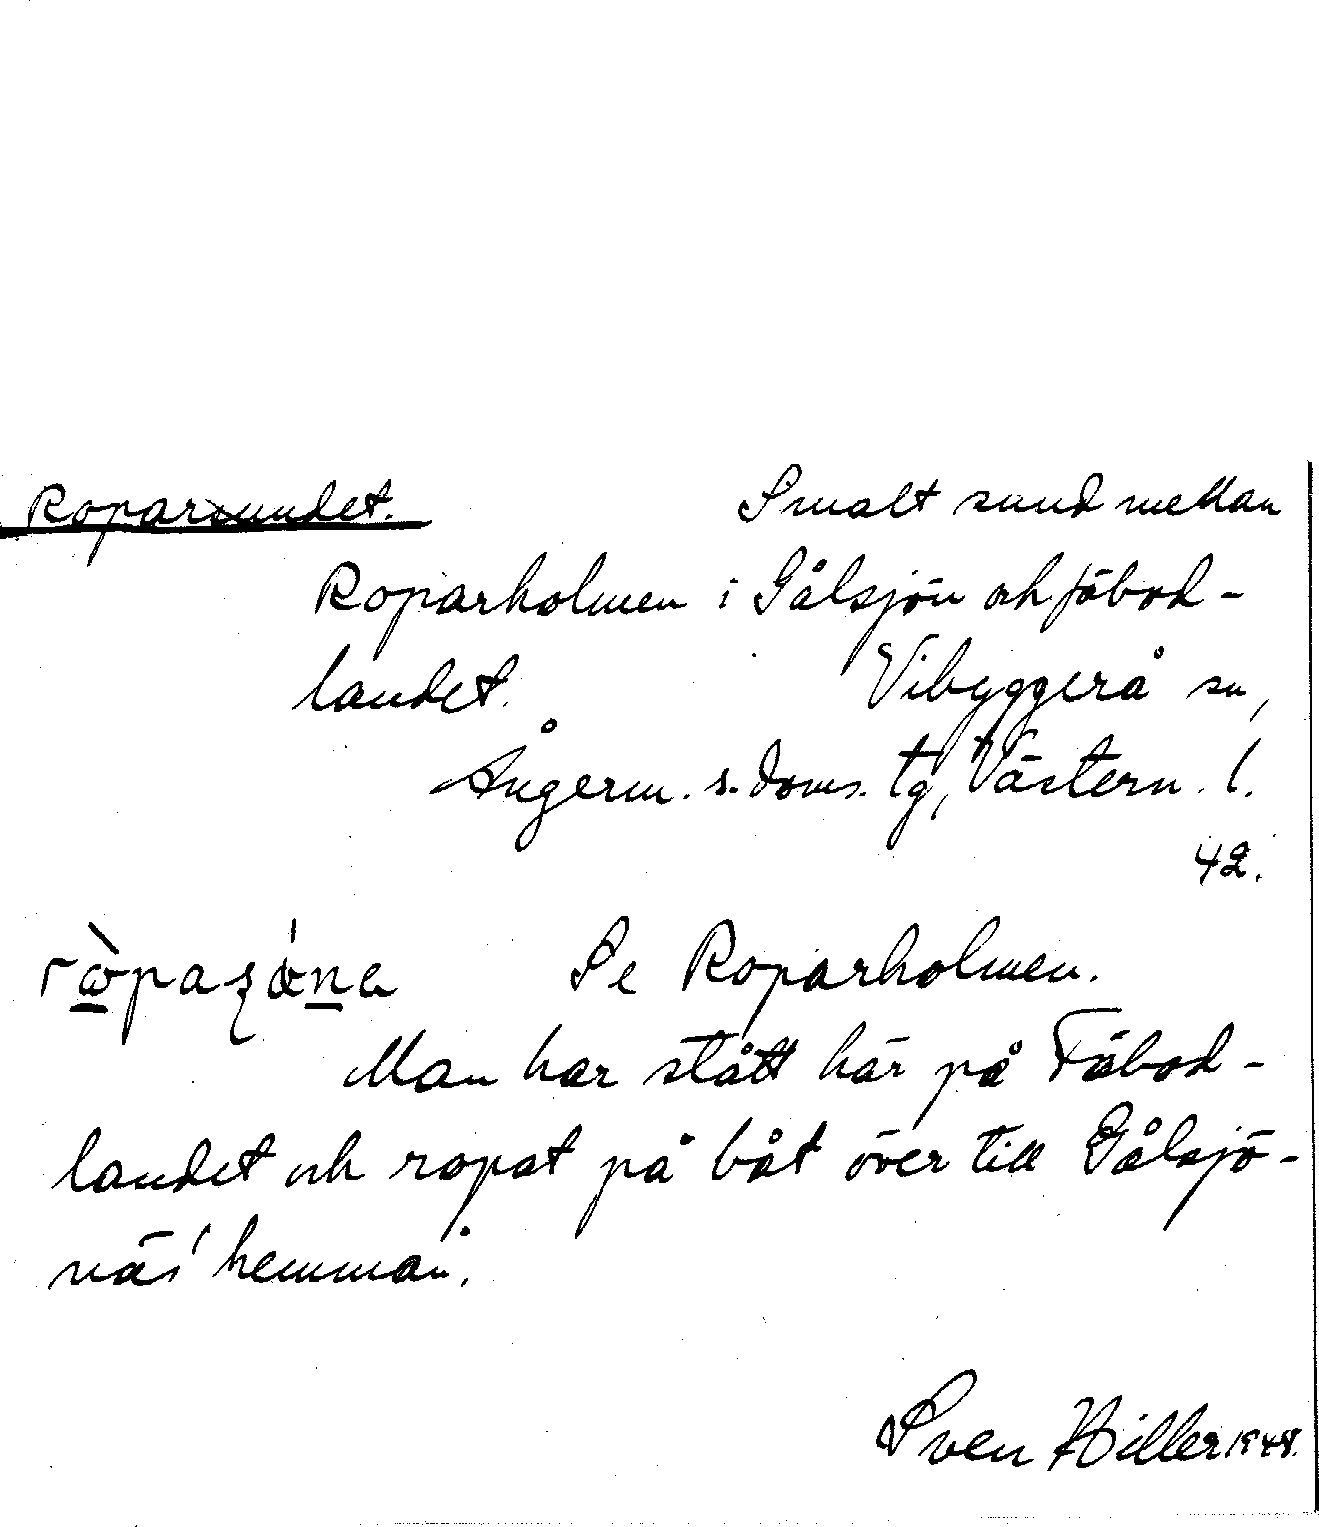 Roparsundet. Smalt sund mellan
Roparholmen i Gålsjön och fäbod-
landet. Vibyggerå sn,
Ångerm. s. doms. tg, Västern. l.
42.
Se Roparholmen.
Man har stått här på Fäbod-
landet och ropat på båt över till Gålsjö-
näs' hemman.
Sven Hiller 1948.